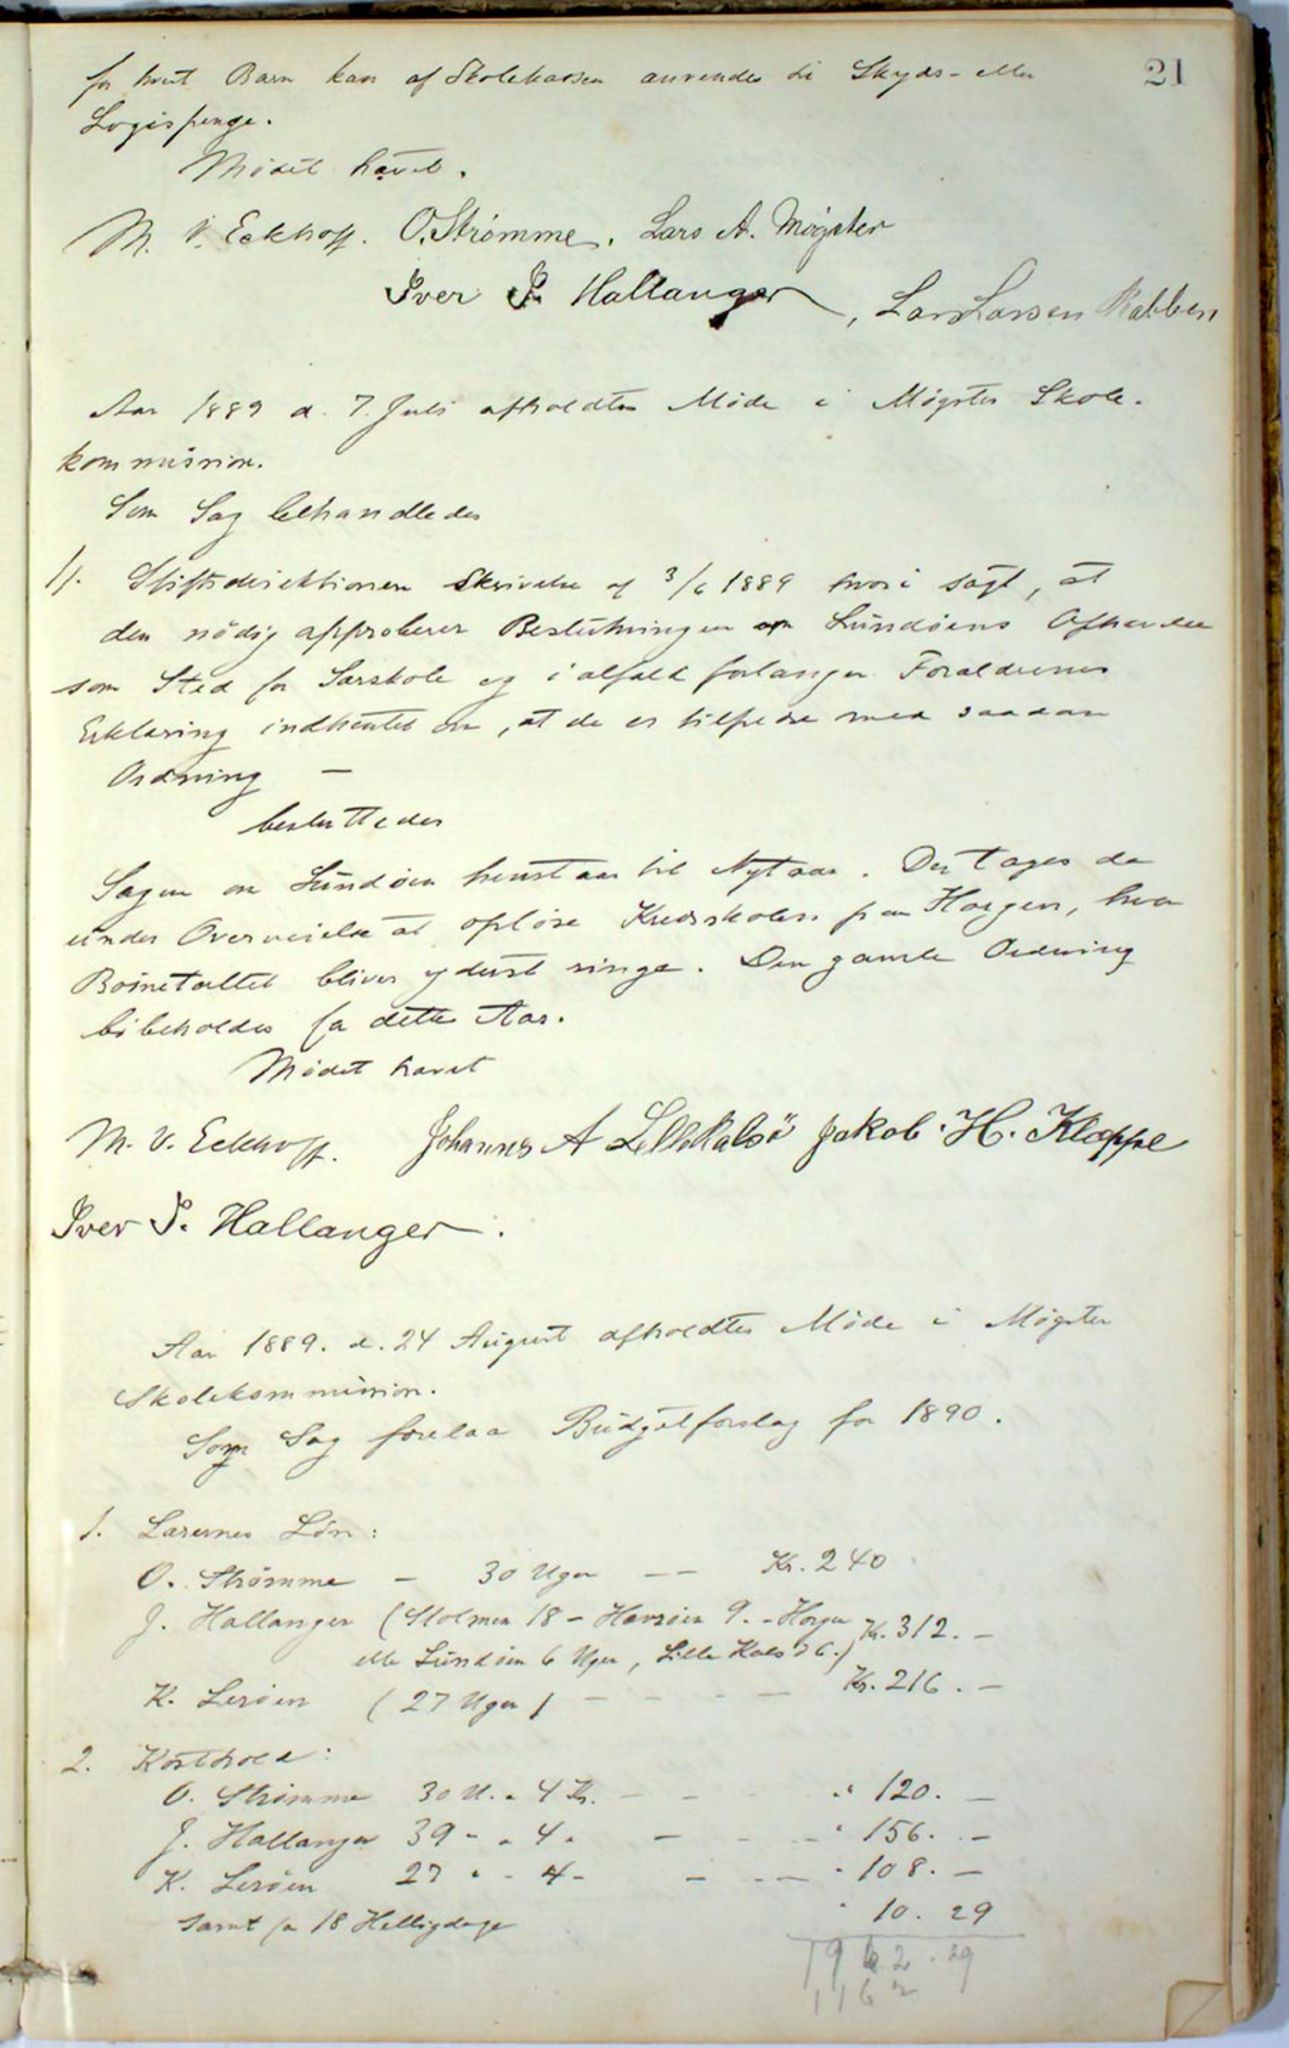 21
for hvert Barn kan af Skolekassen anvendes til Skyds- eller
Logispenge.
Mødet hævet.
M. V. Eckhoff. O. Strømme. Lars A. Møgster
Iver P. Hallanger, Lars Larsen Rabben
Aar 1889 d. 7. Juli afholdtes Møde i Møgster Skole-
kommission.
Som Sag behandledes
1). Stiftsdirektionens Skrivelse af 3/6 1889 hvori sagt, at
den nødig approberer Beslutningen om Lundøens
som Sted for Særskole og ialfald forlanger Forældrenes
Erklæring indhentet om, at de er tilfredse med saadan
Ordning —
besluttedes
Sagen om Lundøen henstaar til Nytaar. Der tages da
under Overveielse at opløse Kredsskolen paa Horgen, hvor
Børnetallet bliver yderst ringe. Den gamle Ordning
bibeholdes for dette Aar.
Mødet hævet
M. V. Eckhoff. Johannes A LilleKalsö Jakob. H. Kleppe
Iver P. Hallanger.
Aar 1889. d. 24 August afholdtes Møde i Møgster
Skolekommission.
Som Sag forelaa Budgetforslag for 1890.
1. Lærernes Løn:
O. Strømme - 30 Uger -- Kr. 240
J. Hallanger (Stolmen 18 - Havsøen 9. - Horgen Kr. 312. -
eller Lundøen 6 Uger, Lille Kalsø 6.)
K. Lerøen (27 Uger) - - - - Kr. 216. -
2. Kosthold:
O. Strømme 30 U. à 4 Kr. - - " 120. -
J. Hallanger 39 - " 4 " - - - " 156. -
K. Lerøen 27 " - 4 - - - - " 108. -
samt for 18 Helligdage " 10. 29
1962. 29
1162